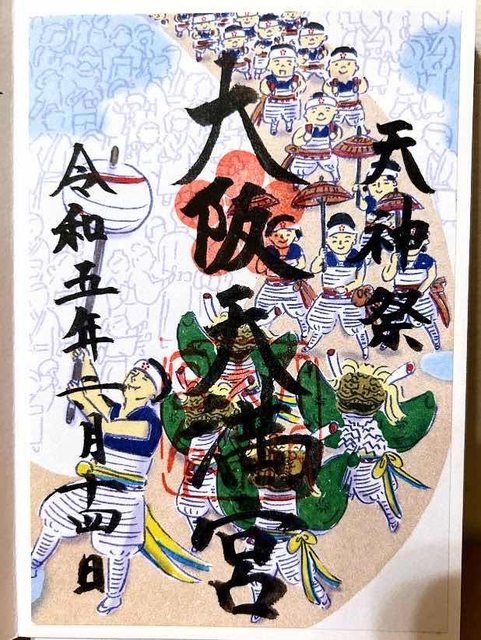 天神祭
大阪天満宮
令和五年二月十四日